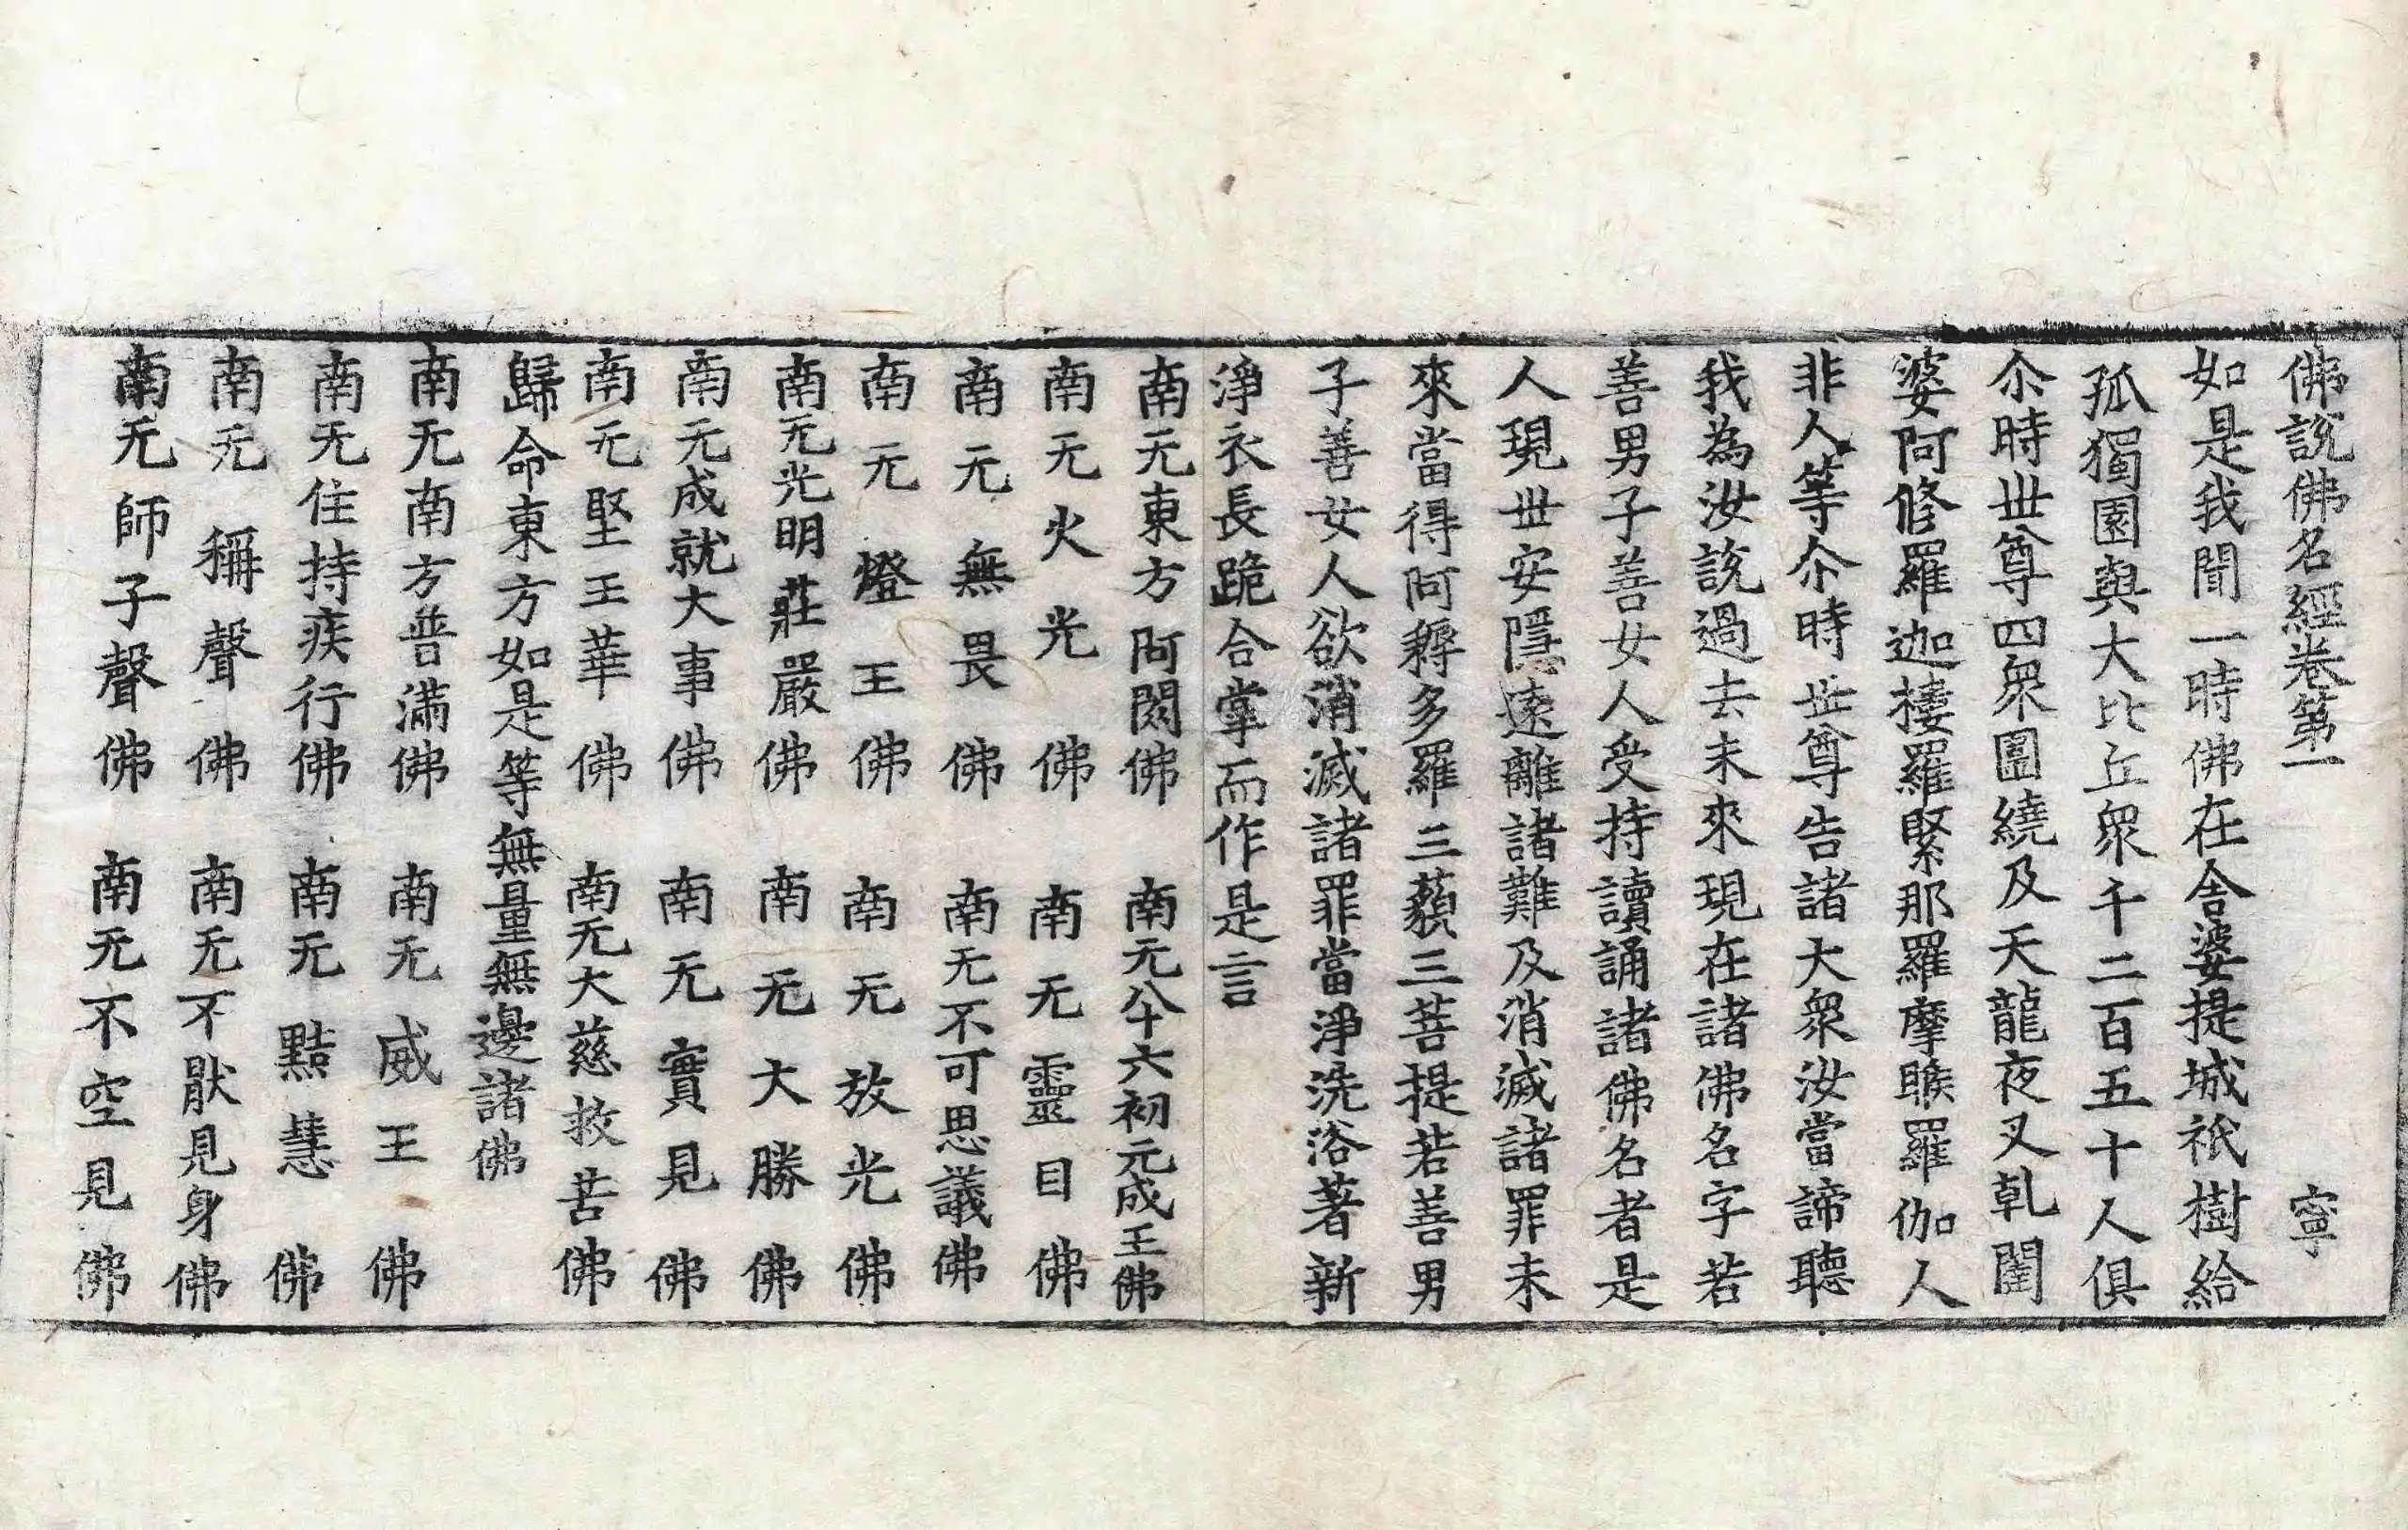 佛說佛名經卷第一　寧
如是我聞一時佛在舍婆提城祇樹給
孤獨園與大比丘眾千二百五十人俱
尒時世尊四眾圍繞及天龍夜叉乹闥
婆阿修羅迦樓羅緊那羅摩睺羅伽人
非人等尒時世尊告諸大眾汝當諦聽
我為汝說過去未來現在諸佛名字若
善男子善女人受持讀誦諸佛名者是
人現世安隱遠離諸難及消滅諸罪未
來當得阿耨多羅三藐三菩提若善男
子善女人欲消滅諸罪當淨洗浴著新
淨衣長跪合掌而作是言
南无東方阿閦佛　南无八十六初元成王佛
南无火光佛　南无靈目佛
南无無畏佛　南无不可思議佛
南无燈王佛　南无放光佛
南无光明莊嚴佛　南无大勝佛
南无成就大事佛　南无實見佛
南无堅王華佛　南无大慈救苦佛
歸命東方如是等無量無邊諸佛
南无南方普滿佛　南无威王佛
南无住持疾行佛　南无黠慧佛
南无稱聲佛　南无不猒見身佛
南无師子聲佛　南无不空見佛